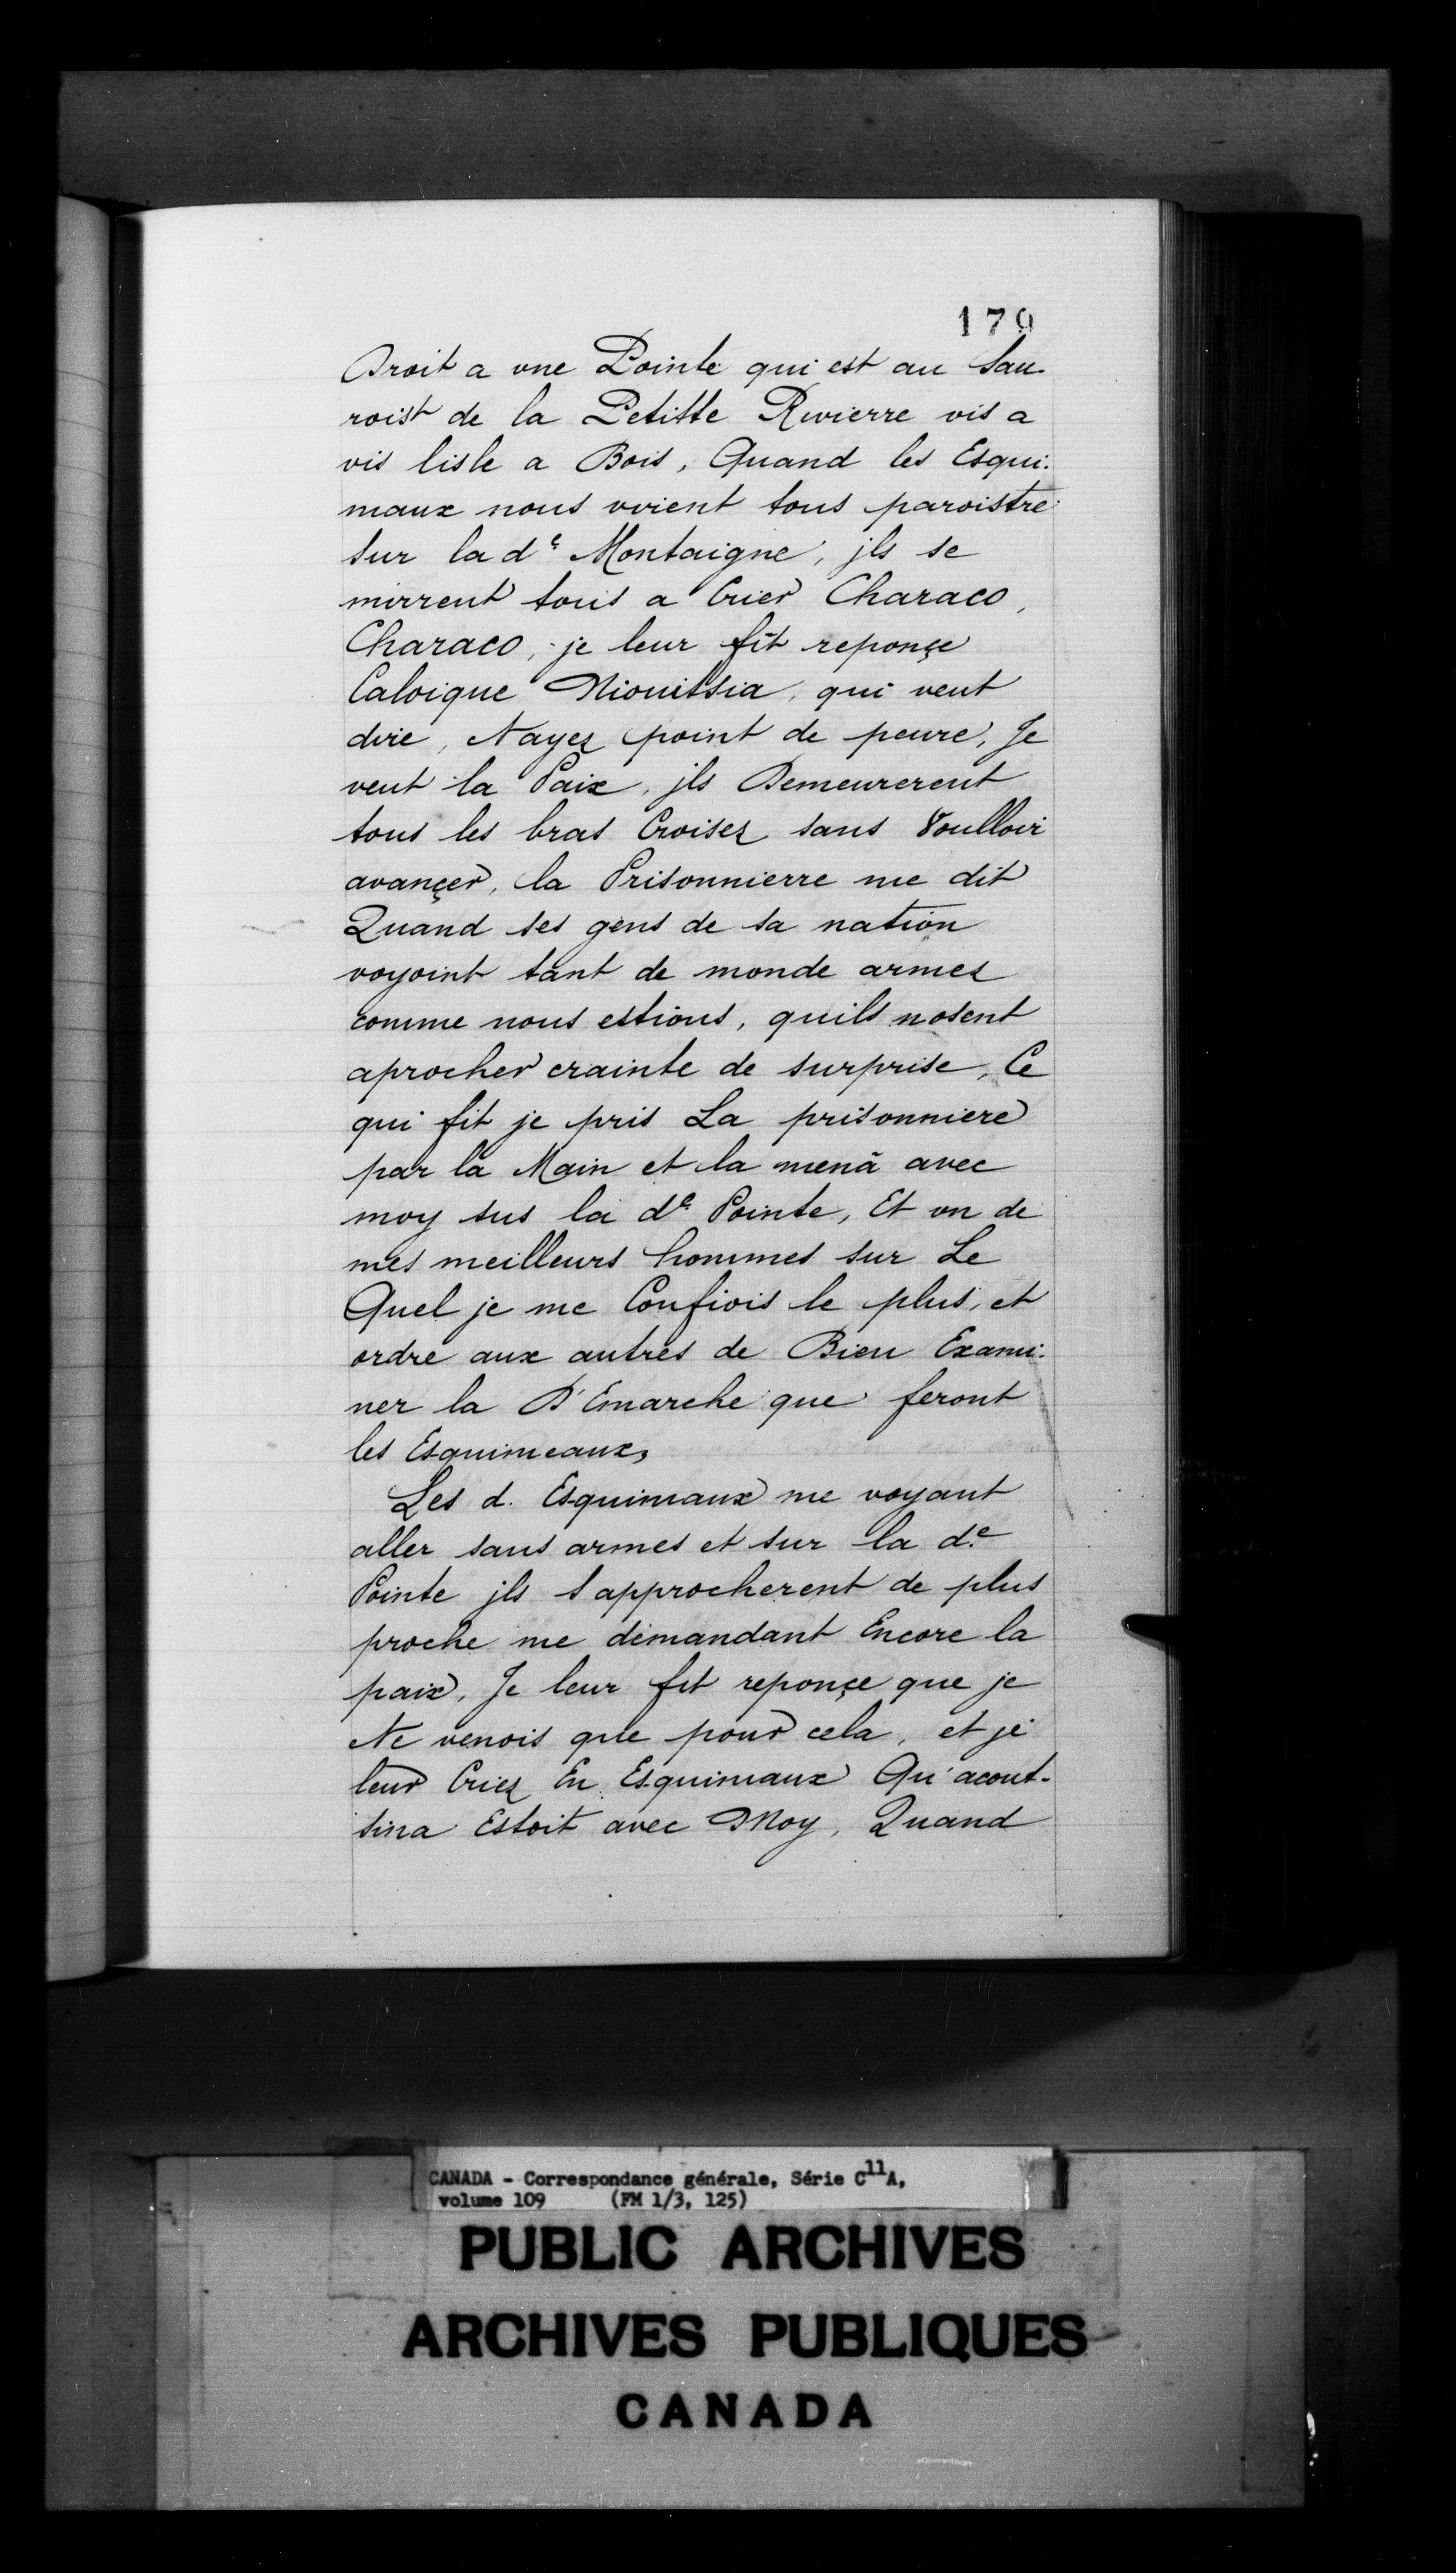 179
Droit a une Pointe qui est au Sau-
roist de la Petitte Rivierre vis a
vis lisle a Bois, Quand les Esqui-
maux nous virent tous paroistre
sur la de Montaigne, jls se
mirrent tous a Crier Characo,
Characo, je leur fit reponçe
Caloique Niouitsia, qui veut
dire, Nayez point de peure, Je
veut la Paix, jls Demeurerent
tous les bras Croisez sans Voulloir
avançer, la Prisonnierre me dit
Quand ses gens de sa nation
voyoint tant de monde armez
comme nous estions, quils nosent
aprocher crainte de surprise, Ce
qui fit je pris La prisonniere
par la Main et la mena avec
moy sus la de Pointe, Et un de
mes meilleurs hommes sur Le
Quel je me Confiois le plus, et
ordre aux autres de Bien Exami-
ner la D'Emarche que feront
les Esquimeaux,
Les d. Esquimaux me voyant
aller sans armes et sur la de
Pointe jls s approcherent de plus
proche me demandant Encore la
paix, Je leur fit reponçe que je
Ne venois que pour cela, et je
leur Criez En Esquimaux Qu'acout-
sina Estoit avec Moy, Quand
CANADA - Correspondance générale, Série C11A,
volume 109 (FM 1/3, 125)
PUBLIC ARCHIVES
ARCHIVES PUBLIQUES
CANADA